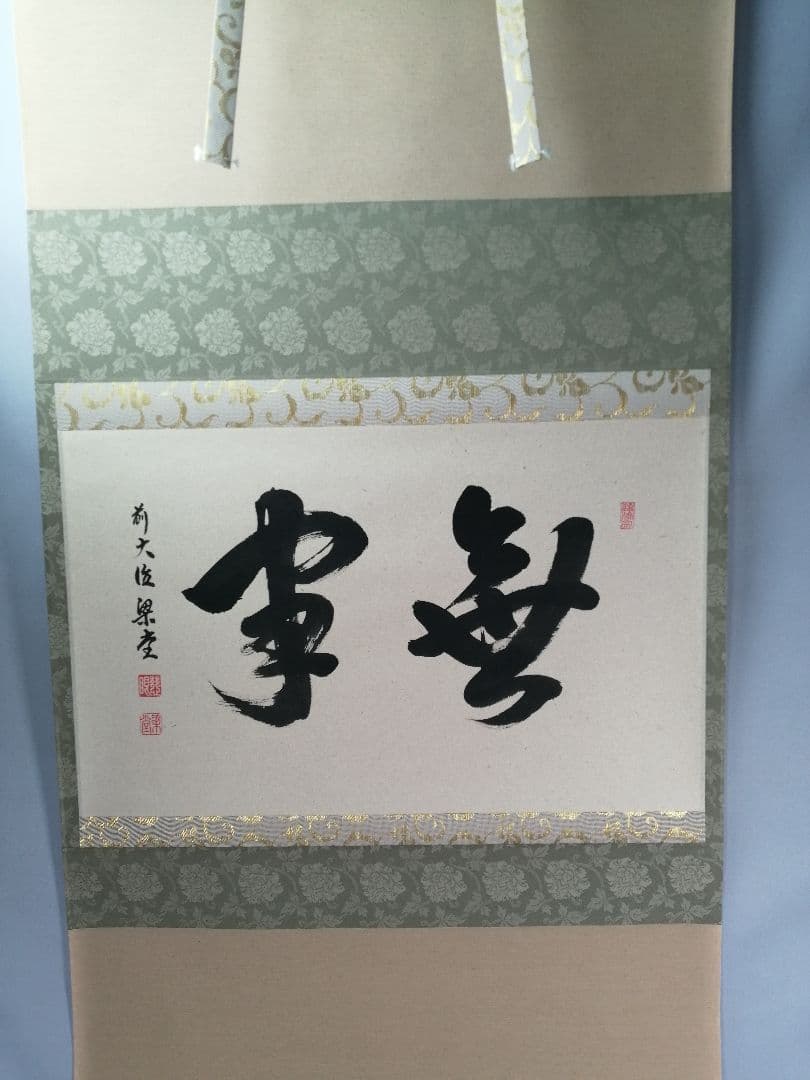 無事
前大徳梁堂